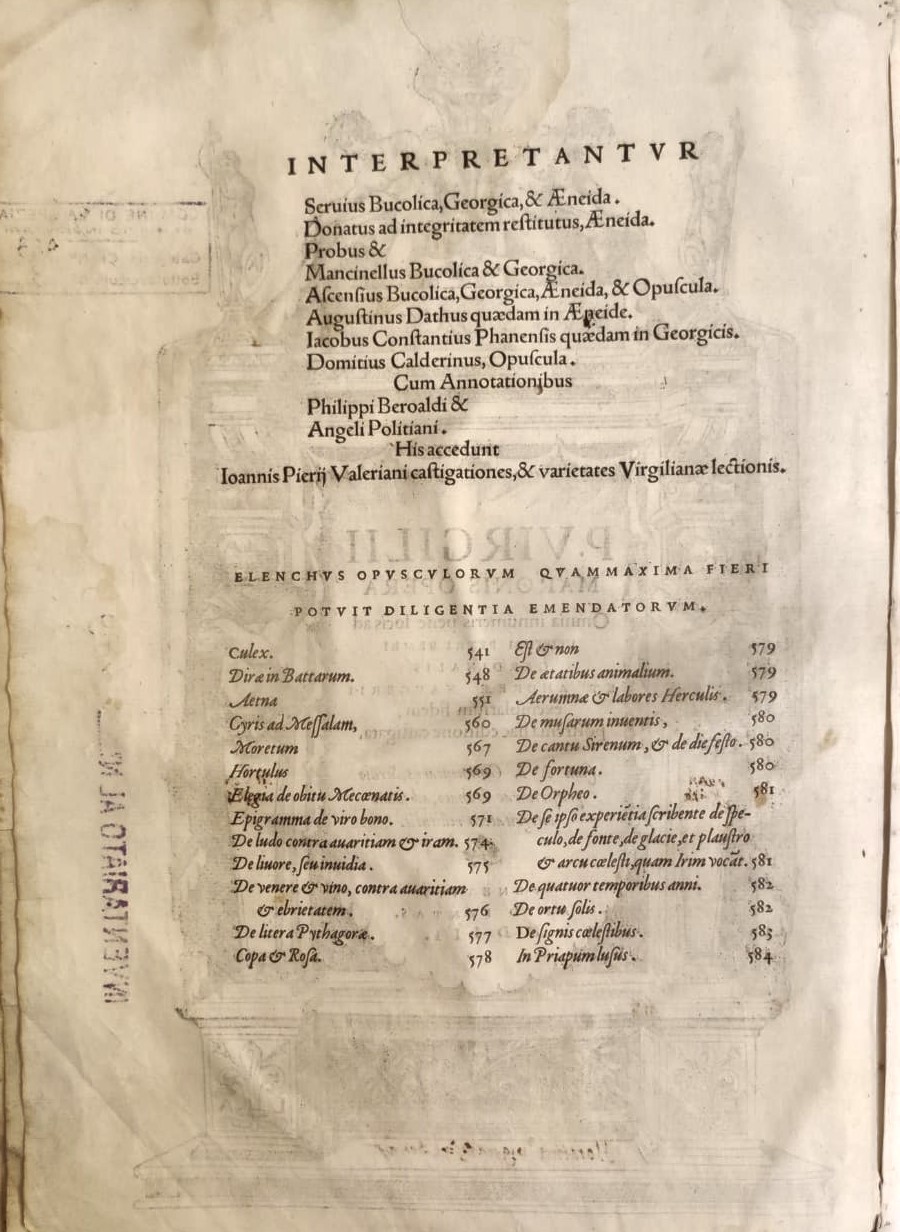 INTERPRETANTVR
Seruius Bucolica,Georgica,& Æneida.
Donatus ad integritatem reſtitutus,Æneida.
Probus &
Mancinellus Bucolica & Georgica.
Aſcenſius Bucolica,Georgica,Æneida, & Opuſcula.
Auguſtinus Dathus quædam in Æneide.
Iacobus Conſtantius Phanenſis quædam in Georgicis.
Domitius Calderinus, Opuſcula.
Cum Annotationibus
Philippi Beroaldi &
Angeli Politiani.
His accedunt
Ioannis Pierij Valeriani caſtigationes,& varietates Virgilianæ lectionis.
ELENCHVS OPVSCVLORVM QVAMMAXIMA FIERI
POTVIT DILIGENTIA EMENDATORVM.
Culex. 541
Diræ in Battarum. 548
Aetna 551
Cyris ad Meſſalam, 560
Moretum 567
Hortulus 569
Elegia de obitu Mecœnatis. 569
Epigramma de viro bono. 571
De ludo contra auaritiam & iram. 574
De liuore, ſeu inuidia. 575
De venere & vino, contra auaritiam
& ebrietatem. 576
De litera Pythagoræ. 577
Copa & Roſa. 578
Eſt & non 579
De ætatibus animalium. 579
Aerumnæ & labores Herculis. 579
De muſarum inuentis, 580
De cantu Sirenum, & de die feſto. 580
De fortuna. 580
De Orpheo. 581
De ſe ipſo experiētia ſcribente de ſpe-
culo, de fonte, de glacie, et plauſtro
& arcu cœleſti, quam Irim vocāt. 581
De quatuor temporibus anni. 582
De ortu ſolis. 582
De ſignis cœleſtibus. 583
In Priapum luſus. 584
P.VIRGILII
MARONIS OPERA
INVENTARIATO AL N.